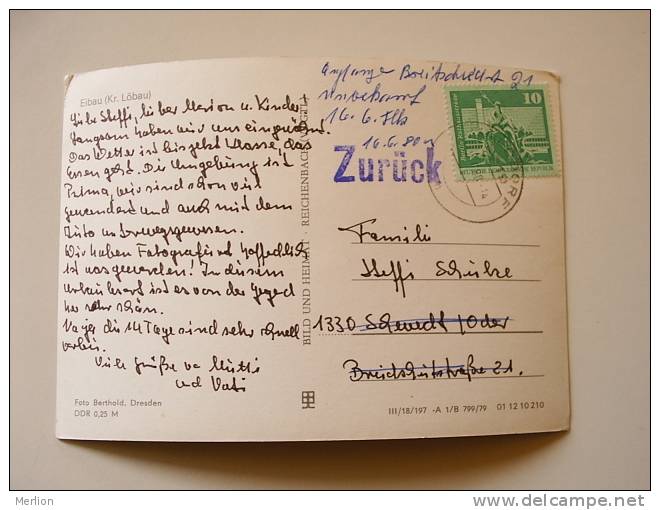 Eibau (Kr. Löbau)
Liebe Steffi, lieber Marion u. Kinder
Langsam haben wir uns eingewöhnt.
Das Wetter ist bis jetzt Klasse, das
Essen gut. Die Umgebung ist
Prima, wir sind schon viel
gewandert und auch mit dem
Auto unterwegs gewesen.
Wir haben Fotografiert hoffentlich
ist was geworden! In diesem
Urlaub ist es von der Gegend
her sehr schön.
Na ja, die 14 Tage sind sehr schnell
vorbei.
Viele Grüße von Mutti
und Vati
Foto Berthold, Dresden
DDR 0,25 M
BILD UND HEIMAT · REICHENBACH
Breitscheidstr 21
unbekannt
16.6.
16.6.80
Zurück
10
Familie
Steffi Schulze
1330 Schwedt/Oder
Breitscheidstraße 21.
III/18/197 -A 1/B 799/79 01 12 10 210
Merlion
www.delcampe.net